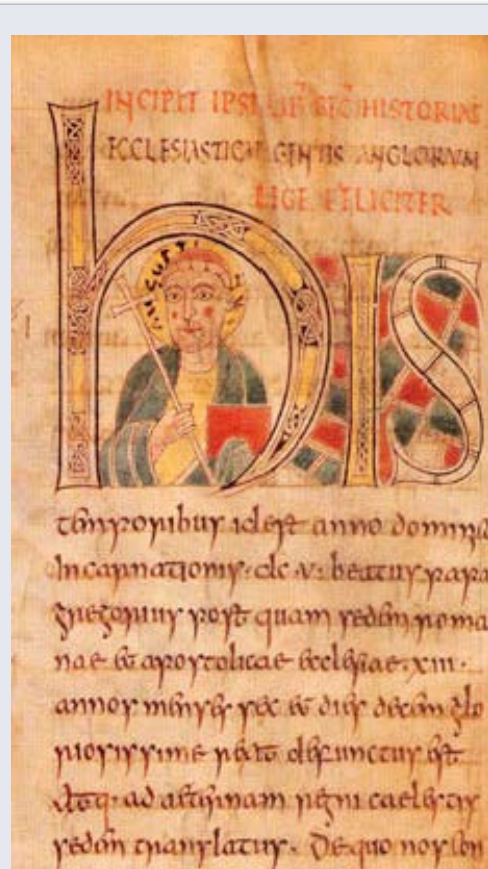 INCIPIT HISTORIAE
ECCLESIASTICAE GENTIS ANGLORUM
LEGE FELICITER
hIS
temporibus id est anno dominic
Incarnationis · dc · v · beatus papa
gregorius post quam sedem roma
nae et apostolicae ecclesiae · xiii ·
annos menses sex et dies decem glo
riosissime rexit defunctus est
atq · ad aeternam regni caelestis
sedem translatus · De quo nos con